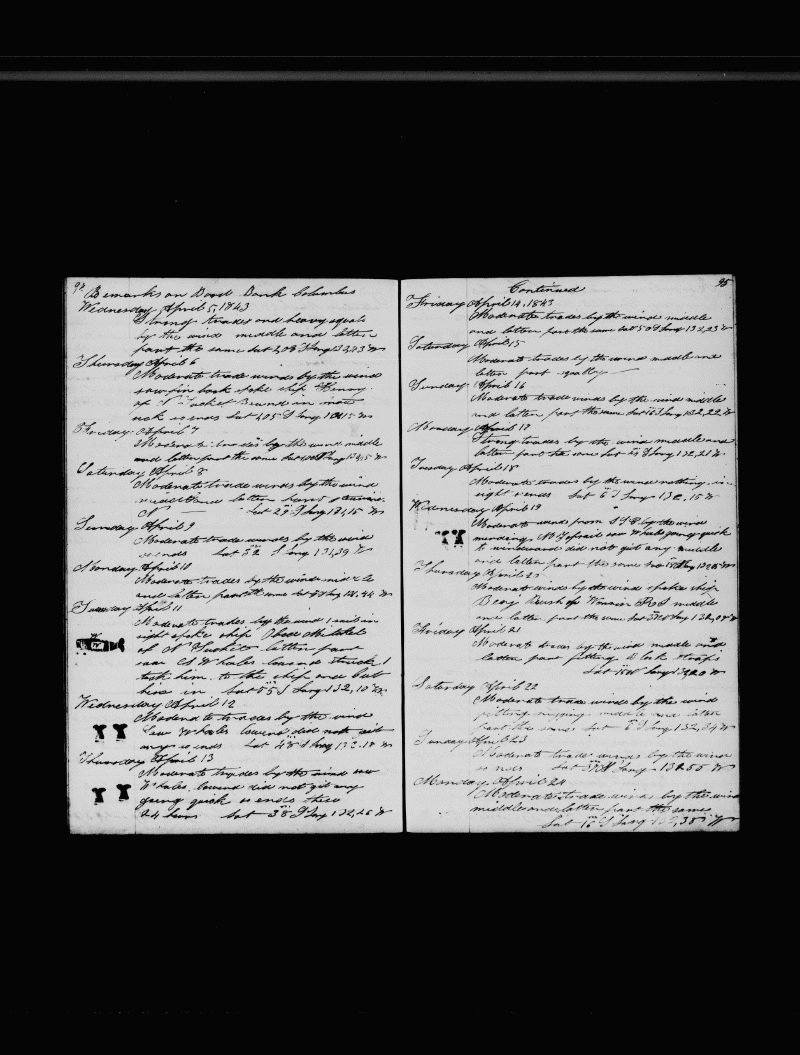 94
Remarks on Board Bark Columbus
Wednesday April 5, 1843
Strong trades and heavy squals
by the wind middle and latter
part the same Lat Long W
Thursday April 6
Moderate trade winds by the wind
saw fin back spoke ship Henry
of bound in
ends Lat 4,05 S Long W
Friday April 7
Moderate trades by the wind middle
and latter part the same Lat Long W
Saturday April 8
Moderate trades by the wind
middle and latter
N Lat 29 S Long 131,15 W
Sunday April 9
Moderate trade winds by the wind
so ends Lat 32 S Long 131,39 W
Monday April 10
Moderate trades by the wind middle
and latter part the same Lat Long W
Tuesday April 11
Moderate trades by the wind 1 sail in
sight spoke ship
of N latter part
saw S Whales lowered struck 1
took him to the ship and cut
him in Lat 55 S Long 132,10 W
Wednesday April 12
Moderate trades by the wind
Saw Whales lowered did not git
any so ends Lat 48 S Long 132,18 W
Thursday April 13
Moderate trades by the wind saw
Whales lowered did not git any
going quick so ends these
24 hours Lat 38 S Long 132,26 W
Continued
95
Friday April 14, 1843
Moderate trades by the wind middle
and latter part the same Lat S Long 132,23 W
Saturday April 15
Moderate trades by the wind middle and
latter part squally
Sunday April 16
Moderate trade winds by the wind middle
and latter part the same Lat S Long 132,22 W
Monday April 17
Strong trades by the wind middle and
latter part the same Lat S Long 132,21 W
Tuesday April 18
Moderate trades by the wind nothing in
sight so ends Lat 6 S Long 132,15 W
Wednesday April 19
Moderate winds from by the wind
saw Whales going quick
to windward did not git any middle
and latter part the same Lat Long W
Thursday April 20
Moderate winds by the wind spoke ship
Benj Rush of Warren R I middle
and latter part the same Lat S Long 132,09 W
Friday April 21
Moderate trades by the wind middle and
latter part fitting block straps
Lat S Long W
Saturday April 22
Moderate trade winds by the wind
fitting rigging middle and latter
part the same Lat 6 S Long 132,34 W
Sunday April 23
Moderate trade winds by the wind
so ends Lat S Long 132,55 W
Monday April 24
Moderate trade winds by the wind
middle and latter part the same
Lat S Long W